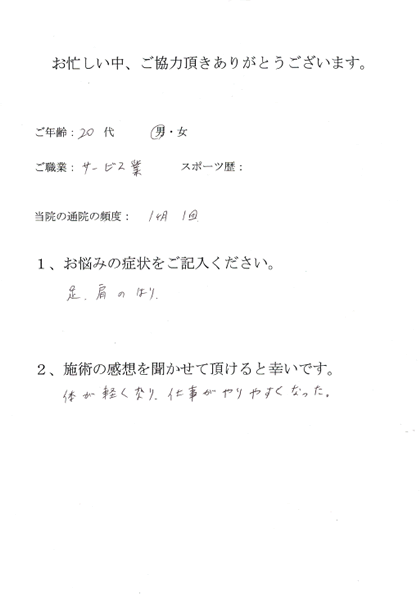 お忙しい中、ご協力頂きありがとうございます。
ご年齢：20 代　男・女
ご職業：サービス業　スポーツ歴：
当院の通院の頻度：　1ヶ月　1回
１、お悩みの症状をご記入ください。
足、肩のはり、
２、施術の感想を聞かせて頂けると幸いです。
体が軽くなり、仕事がやりやすくなった。